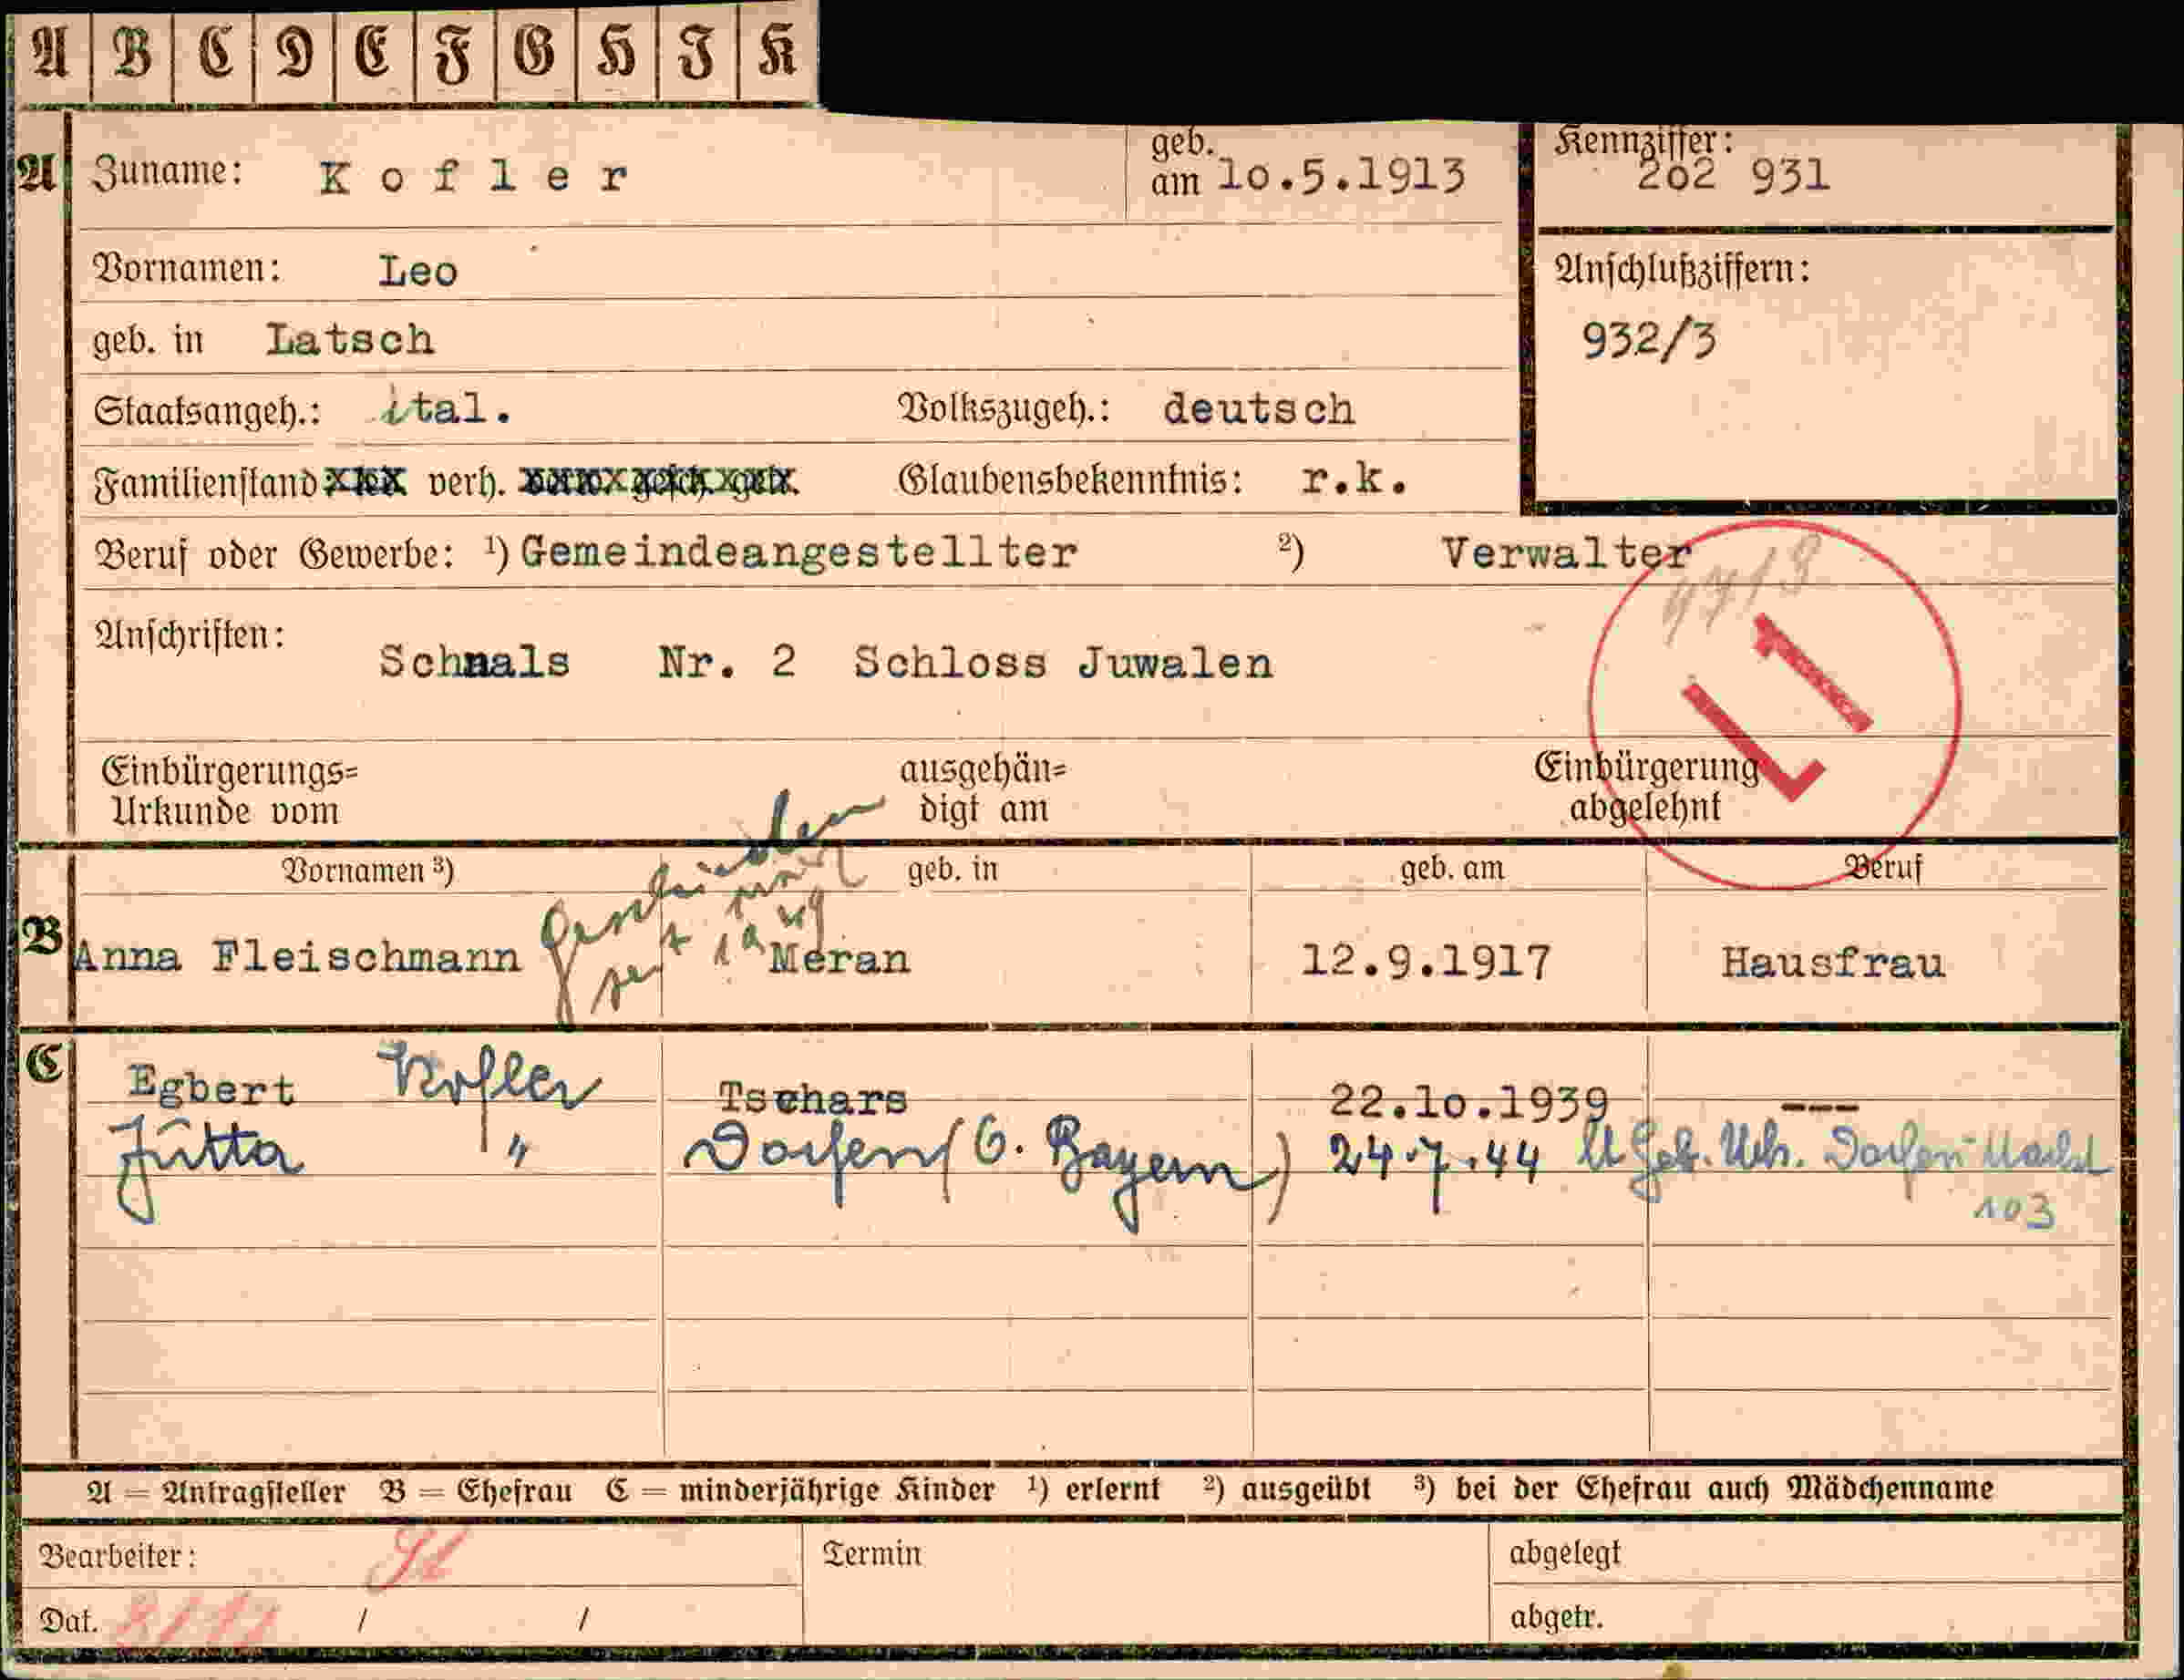 A B C D E F G H J K
A Zuname: Kofler geb. am 10.5.1913 Kennziffer: 202 931
Vornamen: Leo Anschlußziffern:
geb. in Latsch 932/3
Staatsangeh.: ital. Volkszugeh.: deutsch
Familienstand verh. Glaubensbekenntnis: r.k.
Beruf oder Gewerbe: ¹) Gemeindeangestellter ²) Verwalter
Anschriften: Schnals Nr. 2 Schloss Juwalen
L 1
Einbürgerungs= ausgehän= Einbürgerung
Urkunde vom digt am abgelehnt
Vornamen ³) geb. in geb. am Beruf
geschieden
seit
B Anna Fleischmann Meran 12.9.1917 Hausfrau
C Egbert Kofler Tschars 22.10.1939 ---
Jutta " Dorfen (O. Bayern) 24.7.44 lt Geb. Urk. Dorfen Markt
103
A = Antragsteller B = Ehefrau C = minderjährige Kinder ¹) erlernt ²) ausgeübt ³) bei der Ehefrau auch Mädchenname
Bearbeiter: Termin abgelegt
Dat. / / abgetr.